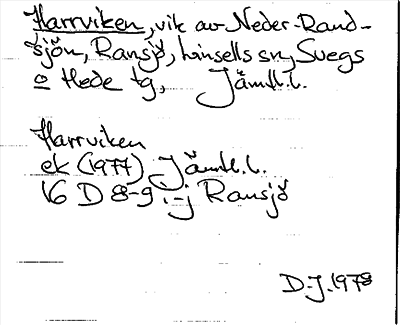 Harrviken, vik av Neder-Rand-
sjön, Ransjö, Linsells sn, Svegs
o Hede tg, Jämtl.l.
Harrviken
ek (1977) Jämtl.l.
16 D 8-9 i-j Ransjö
D.J. 1978